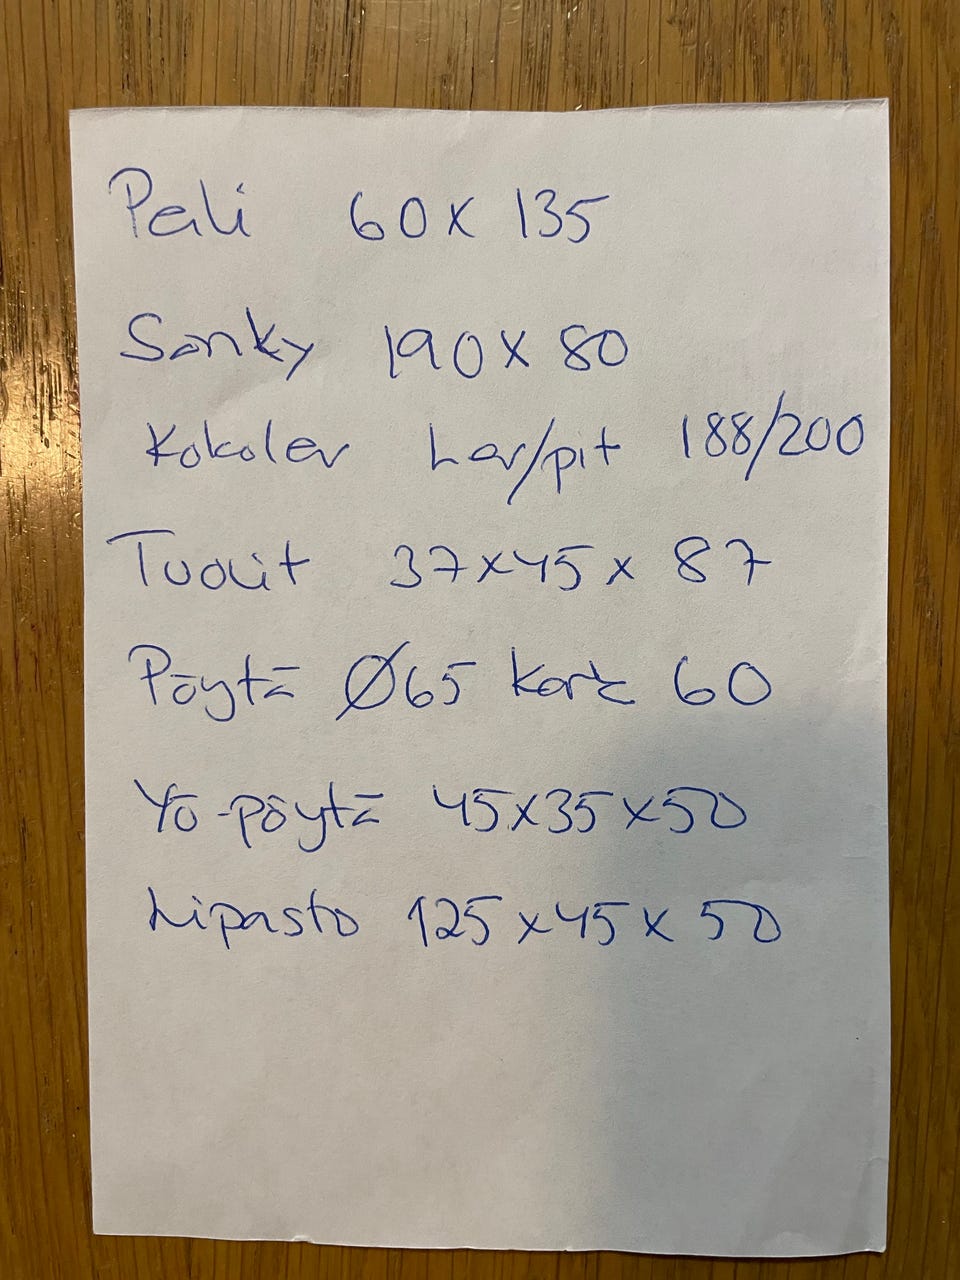 Peili 60 x 135
Sänky 190 x 80
Kokolev Lev/pit 188/200
Tuolit 37 x 45 x 87
Pöytä Ø65 Kork 60
Yö-pöytä 45x35x50
Lipasto 125 x 45 x 50